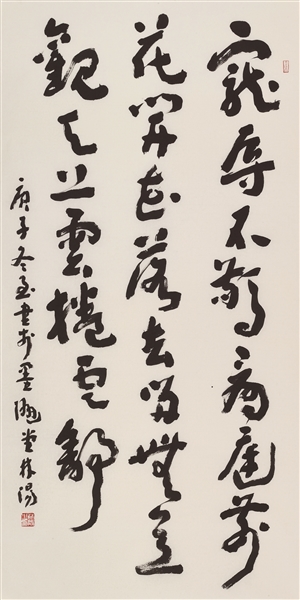 寵辱不驚看庭前
花開花落去留無意
觀天上雲捲雲舒
庚子冬至書於墨堂林